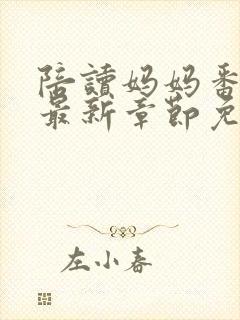 陪讀妈妈番
最新章節免
左小春